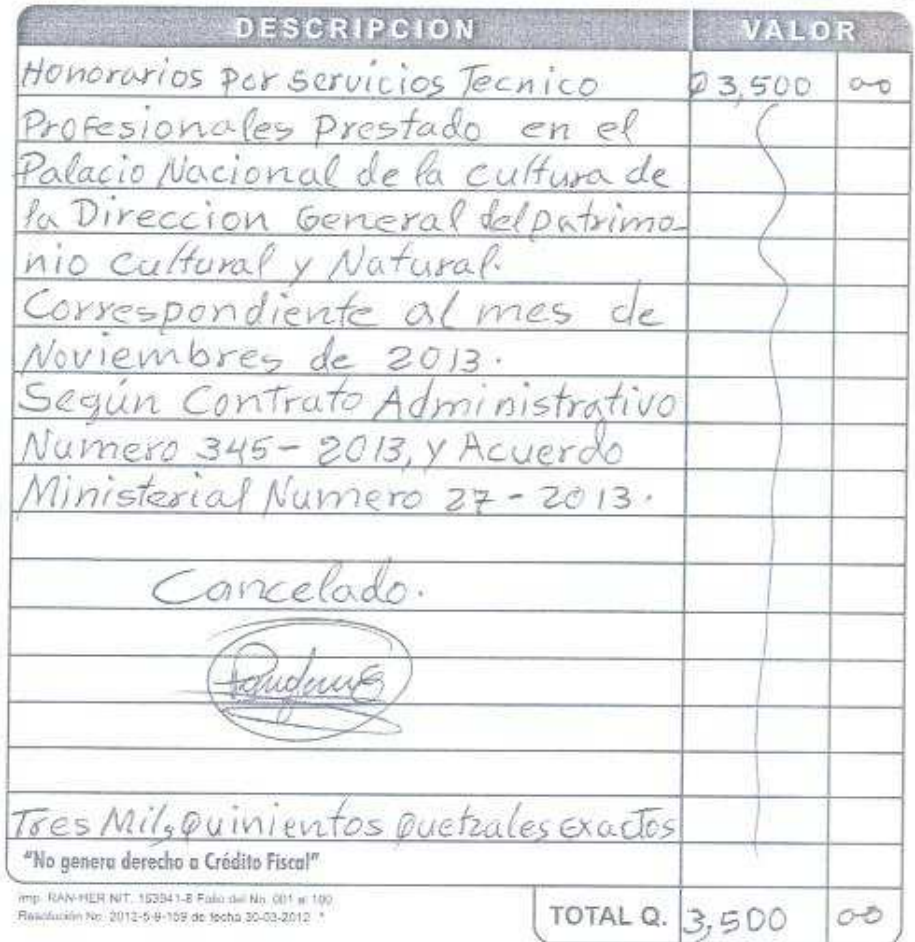 DESCRIPCION VALOR
Honorarios por servicios Tecnico Q3,500 00
Profesionales prestado en el
Palacio Nacional de la cultura de
la Direccion General del patrimo-
nio cultural y Natural.
Correspondiente al mes de
Noviembres de 2013.
Según Contrato Administrativo
Numero 345-2013, y Acuerdo
Ministerial Numero 27-2013.
Cancelado.
Tres Mil, Quinientos Quetzales exactos
"No genera derecho a Crédito Fiscal"
Imp. RAN-HER NIT. 153941-8 Folio del No. 001 al 100
Resolución No. 2012-5-9-159 de fecha 30-03-2012
TOTAL Q. 3,500 00